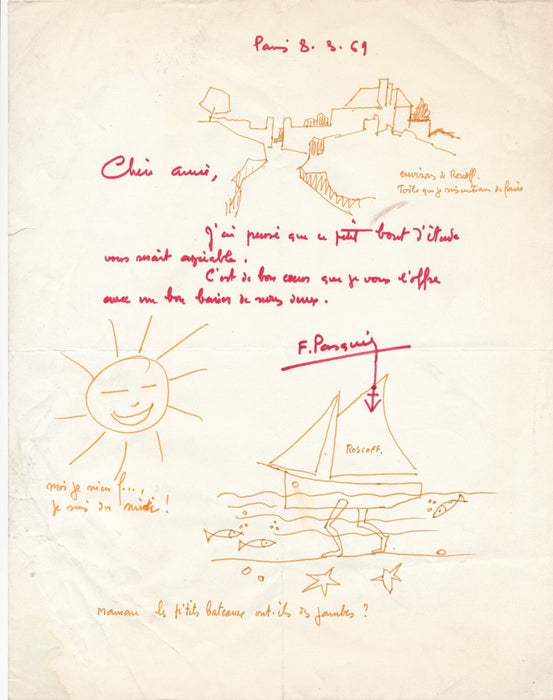 Paris 8. 3. 69
environs de Roscoff.
Toile que j'ai intention de faire
Chère amie,
J'ai pensé que ce petit bout d'étude
vous serait agréable.
C'est de bon cœur que je vous l'offre
avec un bon baiser de nous deux.
F. Pasquie
ROSCOFF.
moi je m'en f...,
je suis du midi !
Maman les p'tits bateaux ont-ils des jambes ?